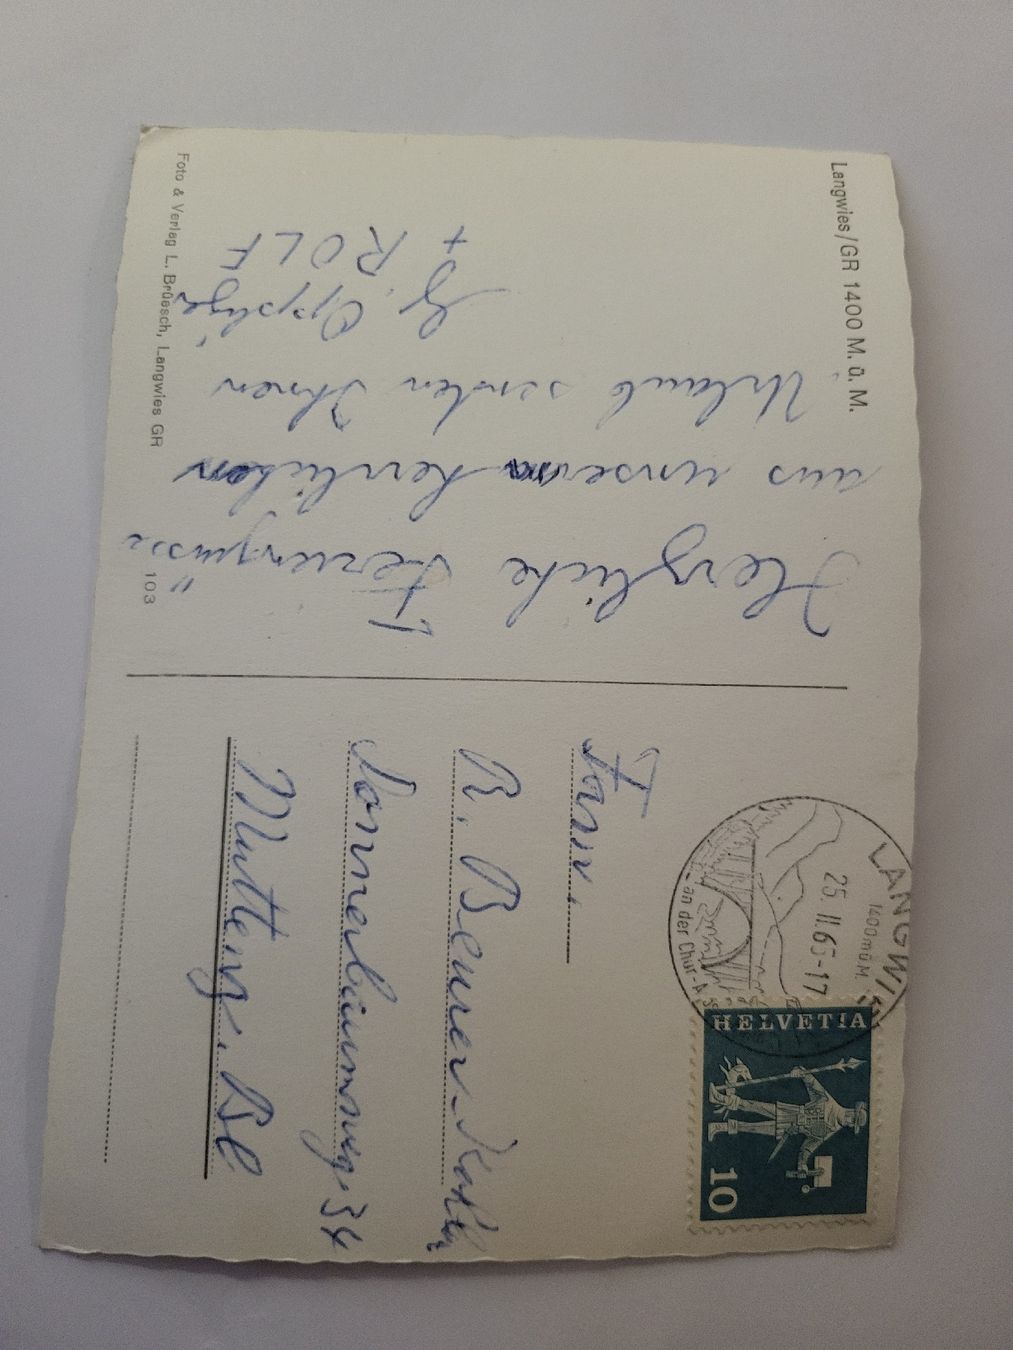 Langwies/GR 1400 M. ü. M.
Herzliche Feriengrüsse
aus unserm herrlichen
Urlaub senden Ihnen
+ ROLF
Foto & Verlag L. Brüesch, Langwies GR
103
LANGWIES
1400 m ü M.
25.II.65-17
an der Chur-A
HELVETIA
10
Fam.
R. Beurer-
Sonnenbaumweg. 34
Muttenz. BL